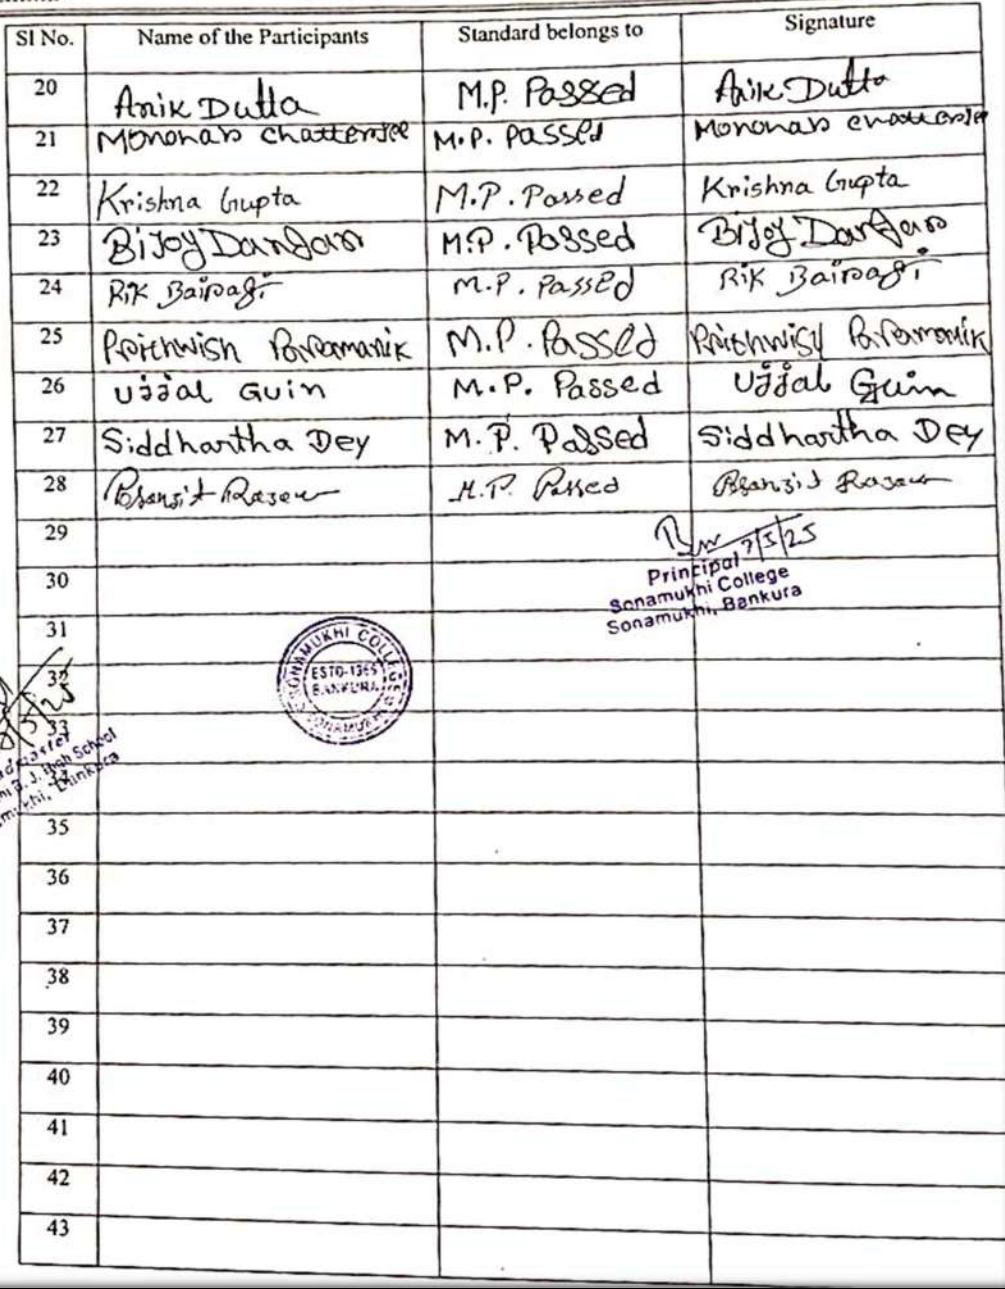 Sl No. Name of the Participants Standard belongs to Signature
20 Anik Dutta M.P. Passed Anik Dutta
21 Monohar Chatterjee M.P. Passed Monohar Chatterjee
22 Krishna Gupta M.P. Passed Krishna Gupta
23 Bijoy Dangar M.P. Passed Bijoy Dangar
24 Rik Bairagi M.P. Passed Rik Bairagi
25 Prithwish Paramanik M.P. Passed Prithwish Paramanik
26 Ujjal Guin M.P. Passed Ujjal Guin
27 Siddhartha Dey M.P. Passed Siddhartha Dey
28 M.P. Passed
29
7/5/25
Principal
Sonamukhi College
Sonamukhi, Bankura
30
31
SONAMUKHI COLLEGE
ESTD-1965
BANKURA
SONAMUKHI
32
33
J. High School
34
35
36
37
38
39
40
41
42
43